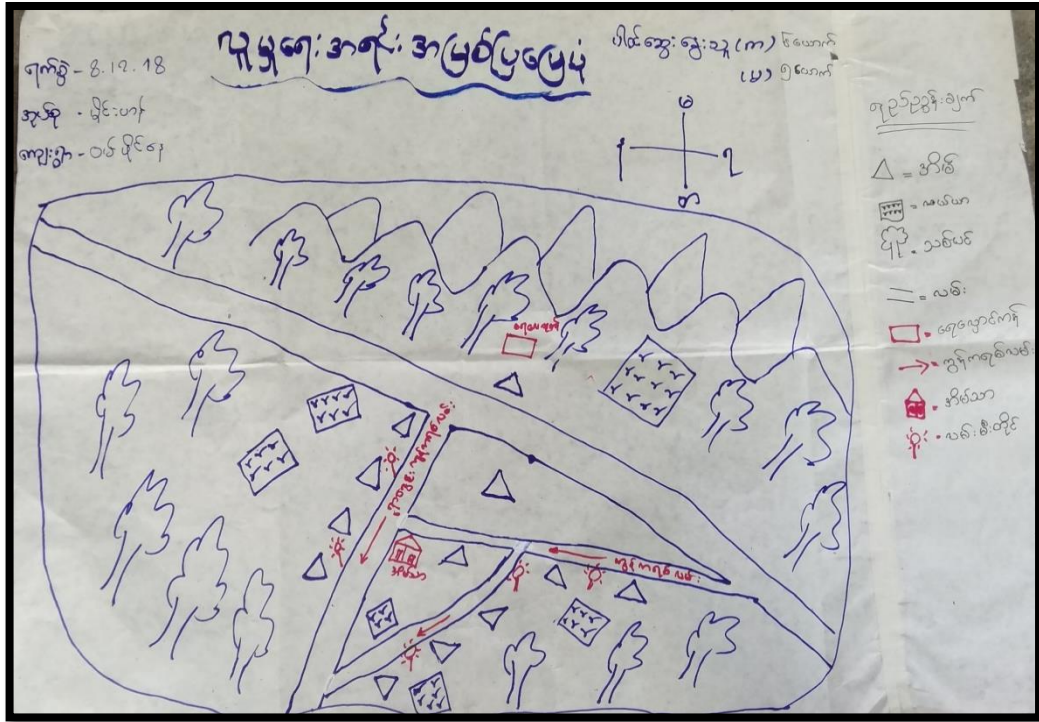 လူမှုရေး အရင်း အမြစ်ပြမြေပုံ
ရက်စွဲ - 8.12.18
အုပ်စု - မိုင်းဟန်
ကျေးရွာ -
ပါဝင်ဆွေးနွေးသူ (ကျား) ၆ယောက်
(မ) ၅ယောက်
ရည်ညွှန်းချက်
△ = အိမ်
= လယ်ယာ
= သစ်ပင်
= လမ်း
= ရေလှောင်ကန်
→ = ကွန်ကရစ်လမ်း
= အိမ်သာ
= လမ်းမီးတိုင်
ကွန်ကရစ်လမ်း
ကွန်ကရစ်လမ်း
အိမ်သာ